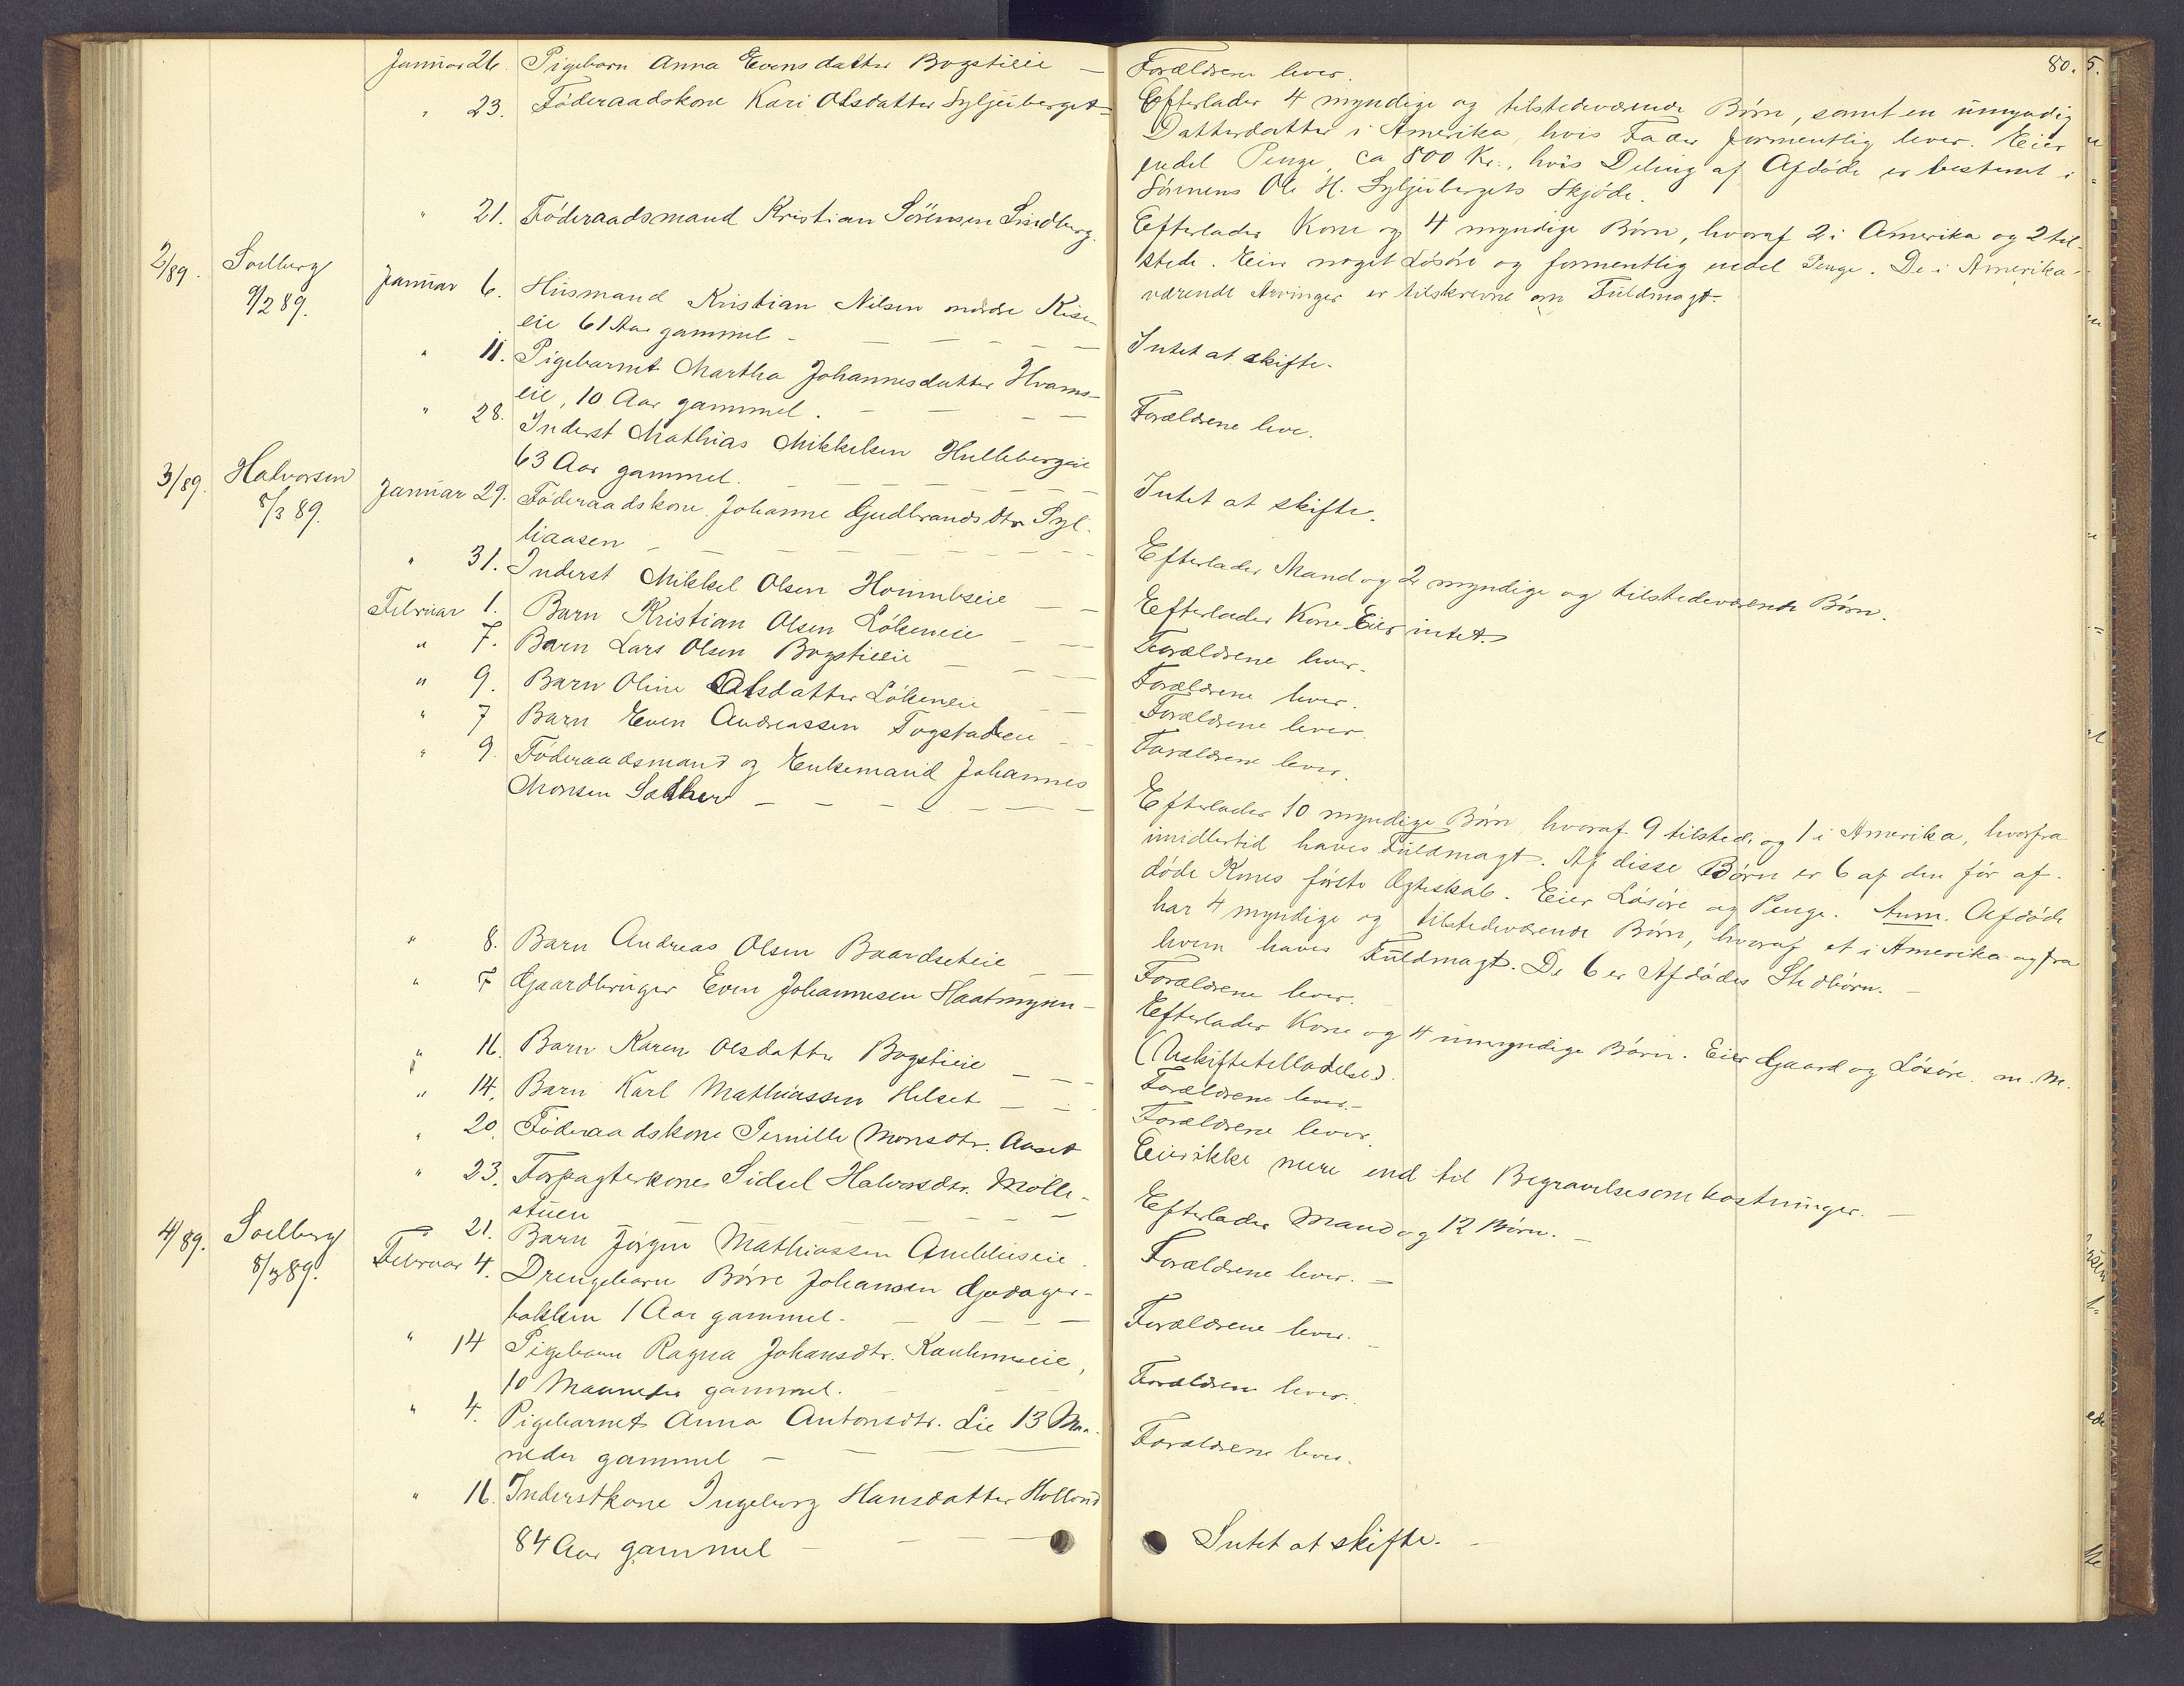 80.
Januar 26. Pigebarn Anna Evensdatter Bogstieie — Forældrene lever.
" 23. Föderaadskone Kari Olsdatter Syljuberget — Efterlader 4 myndige og tilstedeværende Børn, samt en umyndig
Datterdatter i Amerika, hvis Fader formentlig lever. Eier
endel Penge, ca 800 Kr., hvis Deling af Afdöde er bestemt i
Sönnens Ole H. Syljubergets Skjöde.
" 21. Föderaadsmand Kristian Sörensen Lindberg. Efterlader Kone og 4 myndige Börn, hvoraf 2 i Amerika og 2 til-
stede. Eier noget Lösöre og formentlig endel Penge. De i Amerika
værende Arvinger er tilskrevne om Fuldmagt.
2/89. Soelberg
9/2 89.
Januar 6. Husmand Kristian Nilsen nordre Kise-
eie 61 Aar gammel — Intet at skifte.
" 11. Pigebarnet Martha Johannesdatter Hvams-
eie, 10 Aar gammel. — Forældrene leve.
" 28. Inderst Mathias Mikkelsen Hullebergeie
63 Aar gammel. — Intet at skifte.
3/89. Halvorsen
8/3 89.
Januar 29. Föderaadskone Johanne Gudbrandsdtr Syl-
liaasen — Efterlader Mand og 2 myndige og tilstedeværende Börn.
" 31. Inderst Mikkel Olsen — Efterlader Kone. Eier intet.
Februar 1. Barn Kristian Olsen Lökeneie — Forældrene lever.
" 7. Barn Lars Olsen Bogstieie — Forældrene lever.
" 9. Barn Oline Olsdatter Lökeneie — Forældrene lever.
" 7 Barn Even Andreassen Togstadeie — Forældrene lever.
" 9. Föderaadsmand og Enkemand Johannes
Monsen Sæther — Efterlader 10 myndige Börn hvoraf 9 tilstede og 1 i Amerika, hvorfra
imidlertid haves Fuldmagt. Af disse Börn er 6 af den för af-
döde Kones förste Ægteskab. Eier Lösöre og Penge. Anm. Afdöde
har 4 myndige og tilstedeværende Börn, hvoraf et i Amerika og fra
hvem haves Fuldmagt. De 6 er Afdödes Stedbörn.
" 8. Barn Andreas Olsen Baardseteie — Forældrene lever.
" 7 Gaardbruger Even Johannesen Haatmyren — Efterlader Kone og 4 umyndige Börn. Eier Gaard og Lösöre. m. m.
(Uskiftetilladelse).
" 16. Barn Karen Olsdatter Bogstieie — Forældrene lever.
" 14. Barn Karl Mathiassen Helset — Forældrene lever.
" 20. Föderaadskone Pernille Monsdtr. Aaset Eier ikke mere end til Begravelsesomkostninger.
" 23. Forpagterkone Sidsel Halvorsdtr. Mölle-
stuen — Efterlader Mand og 12 Börn.
" 21. Barn Jörgen Mathiassen — Forældrene lever.
4/89. Soelberg
8/3 89.
Februar 4. Drengebarn Börre Johansen Gjodager-
bakken 1 Aar gammel. — Forældrene lever.
" 14 Pigebarn Ragna Johansdtr. Kauhrmseie,
10 Maaneder gammel. — Forældrene lever.
" 4. Pigebarnet Anna Antonsdtr. Lie 13 Maa-
neder gammel — Forældrene lever.
" 16. Inderstkone Ingeborg Hansdatter Holland
84 Aar gammel — Intet at skifte.